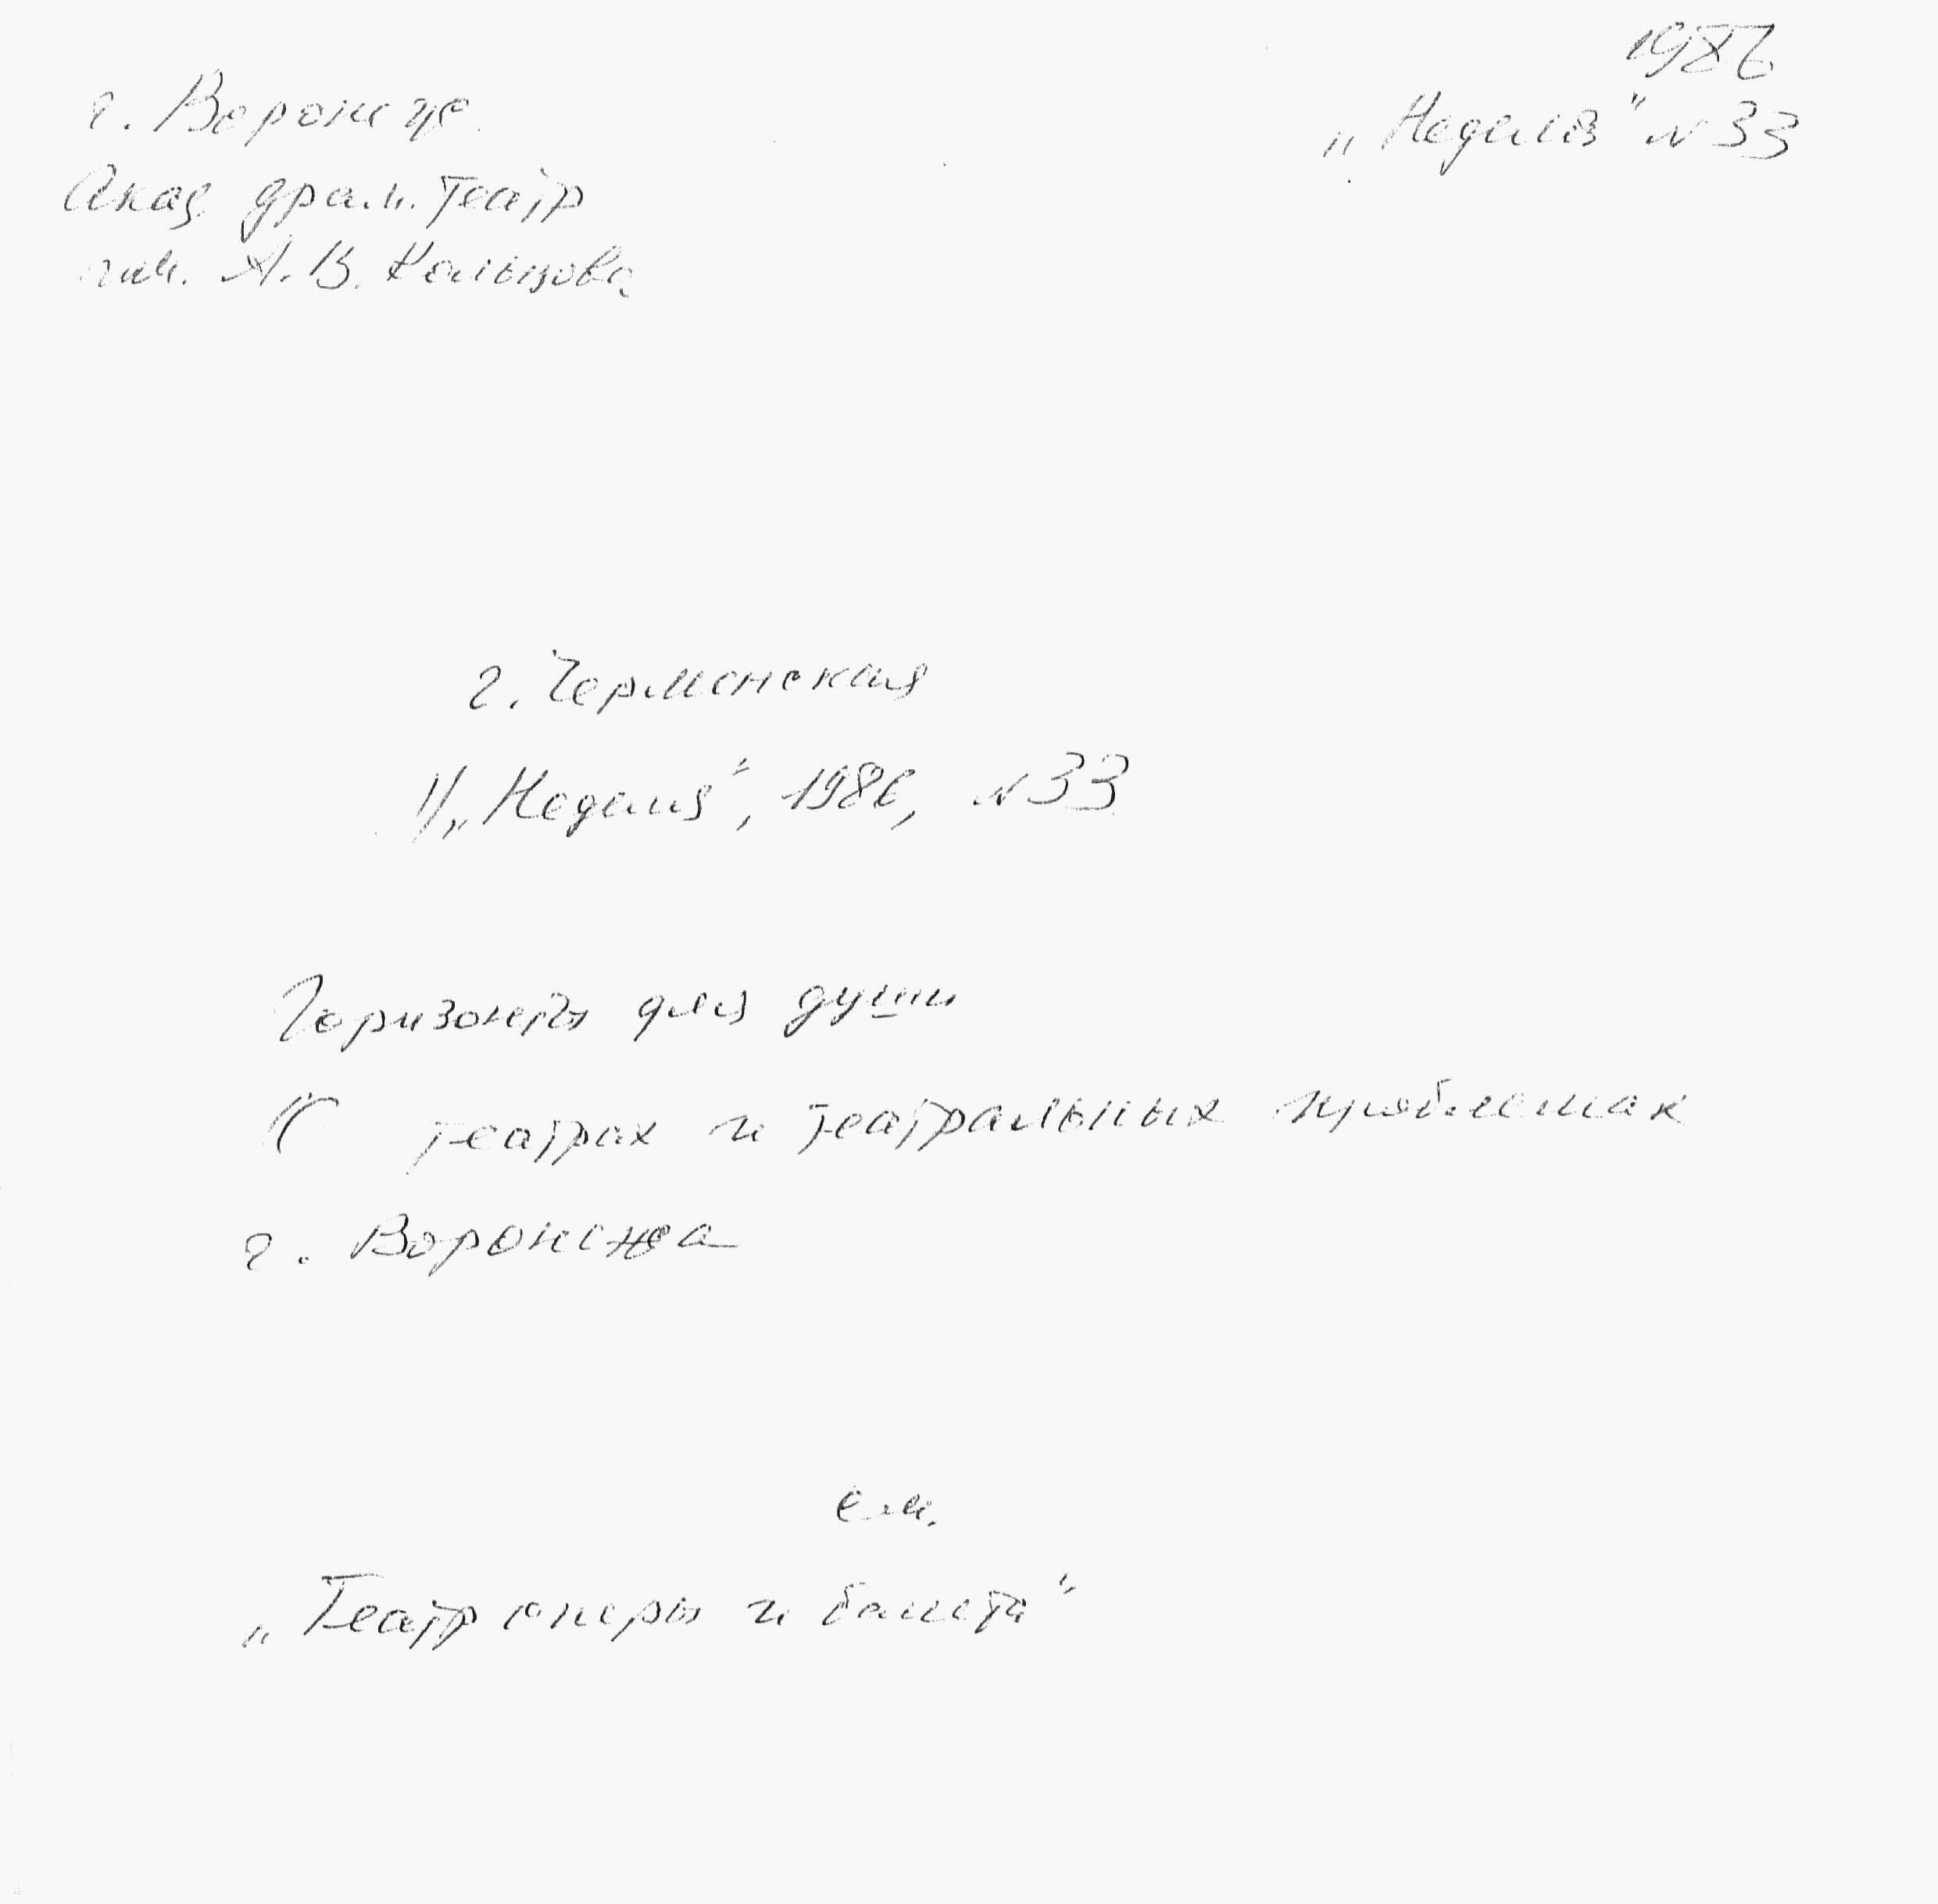 г. Воронеж
1986
„Неделя" N 33
Акад. драм. театр
им. А.В. Кольцова
г. Черменская
// „Неделя", 1986, N 33
Горизонты для души
О театрах и театральных проблемах
г. Воронежа
см.
„Театр оперы и балета"